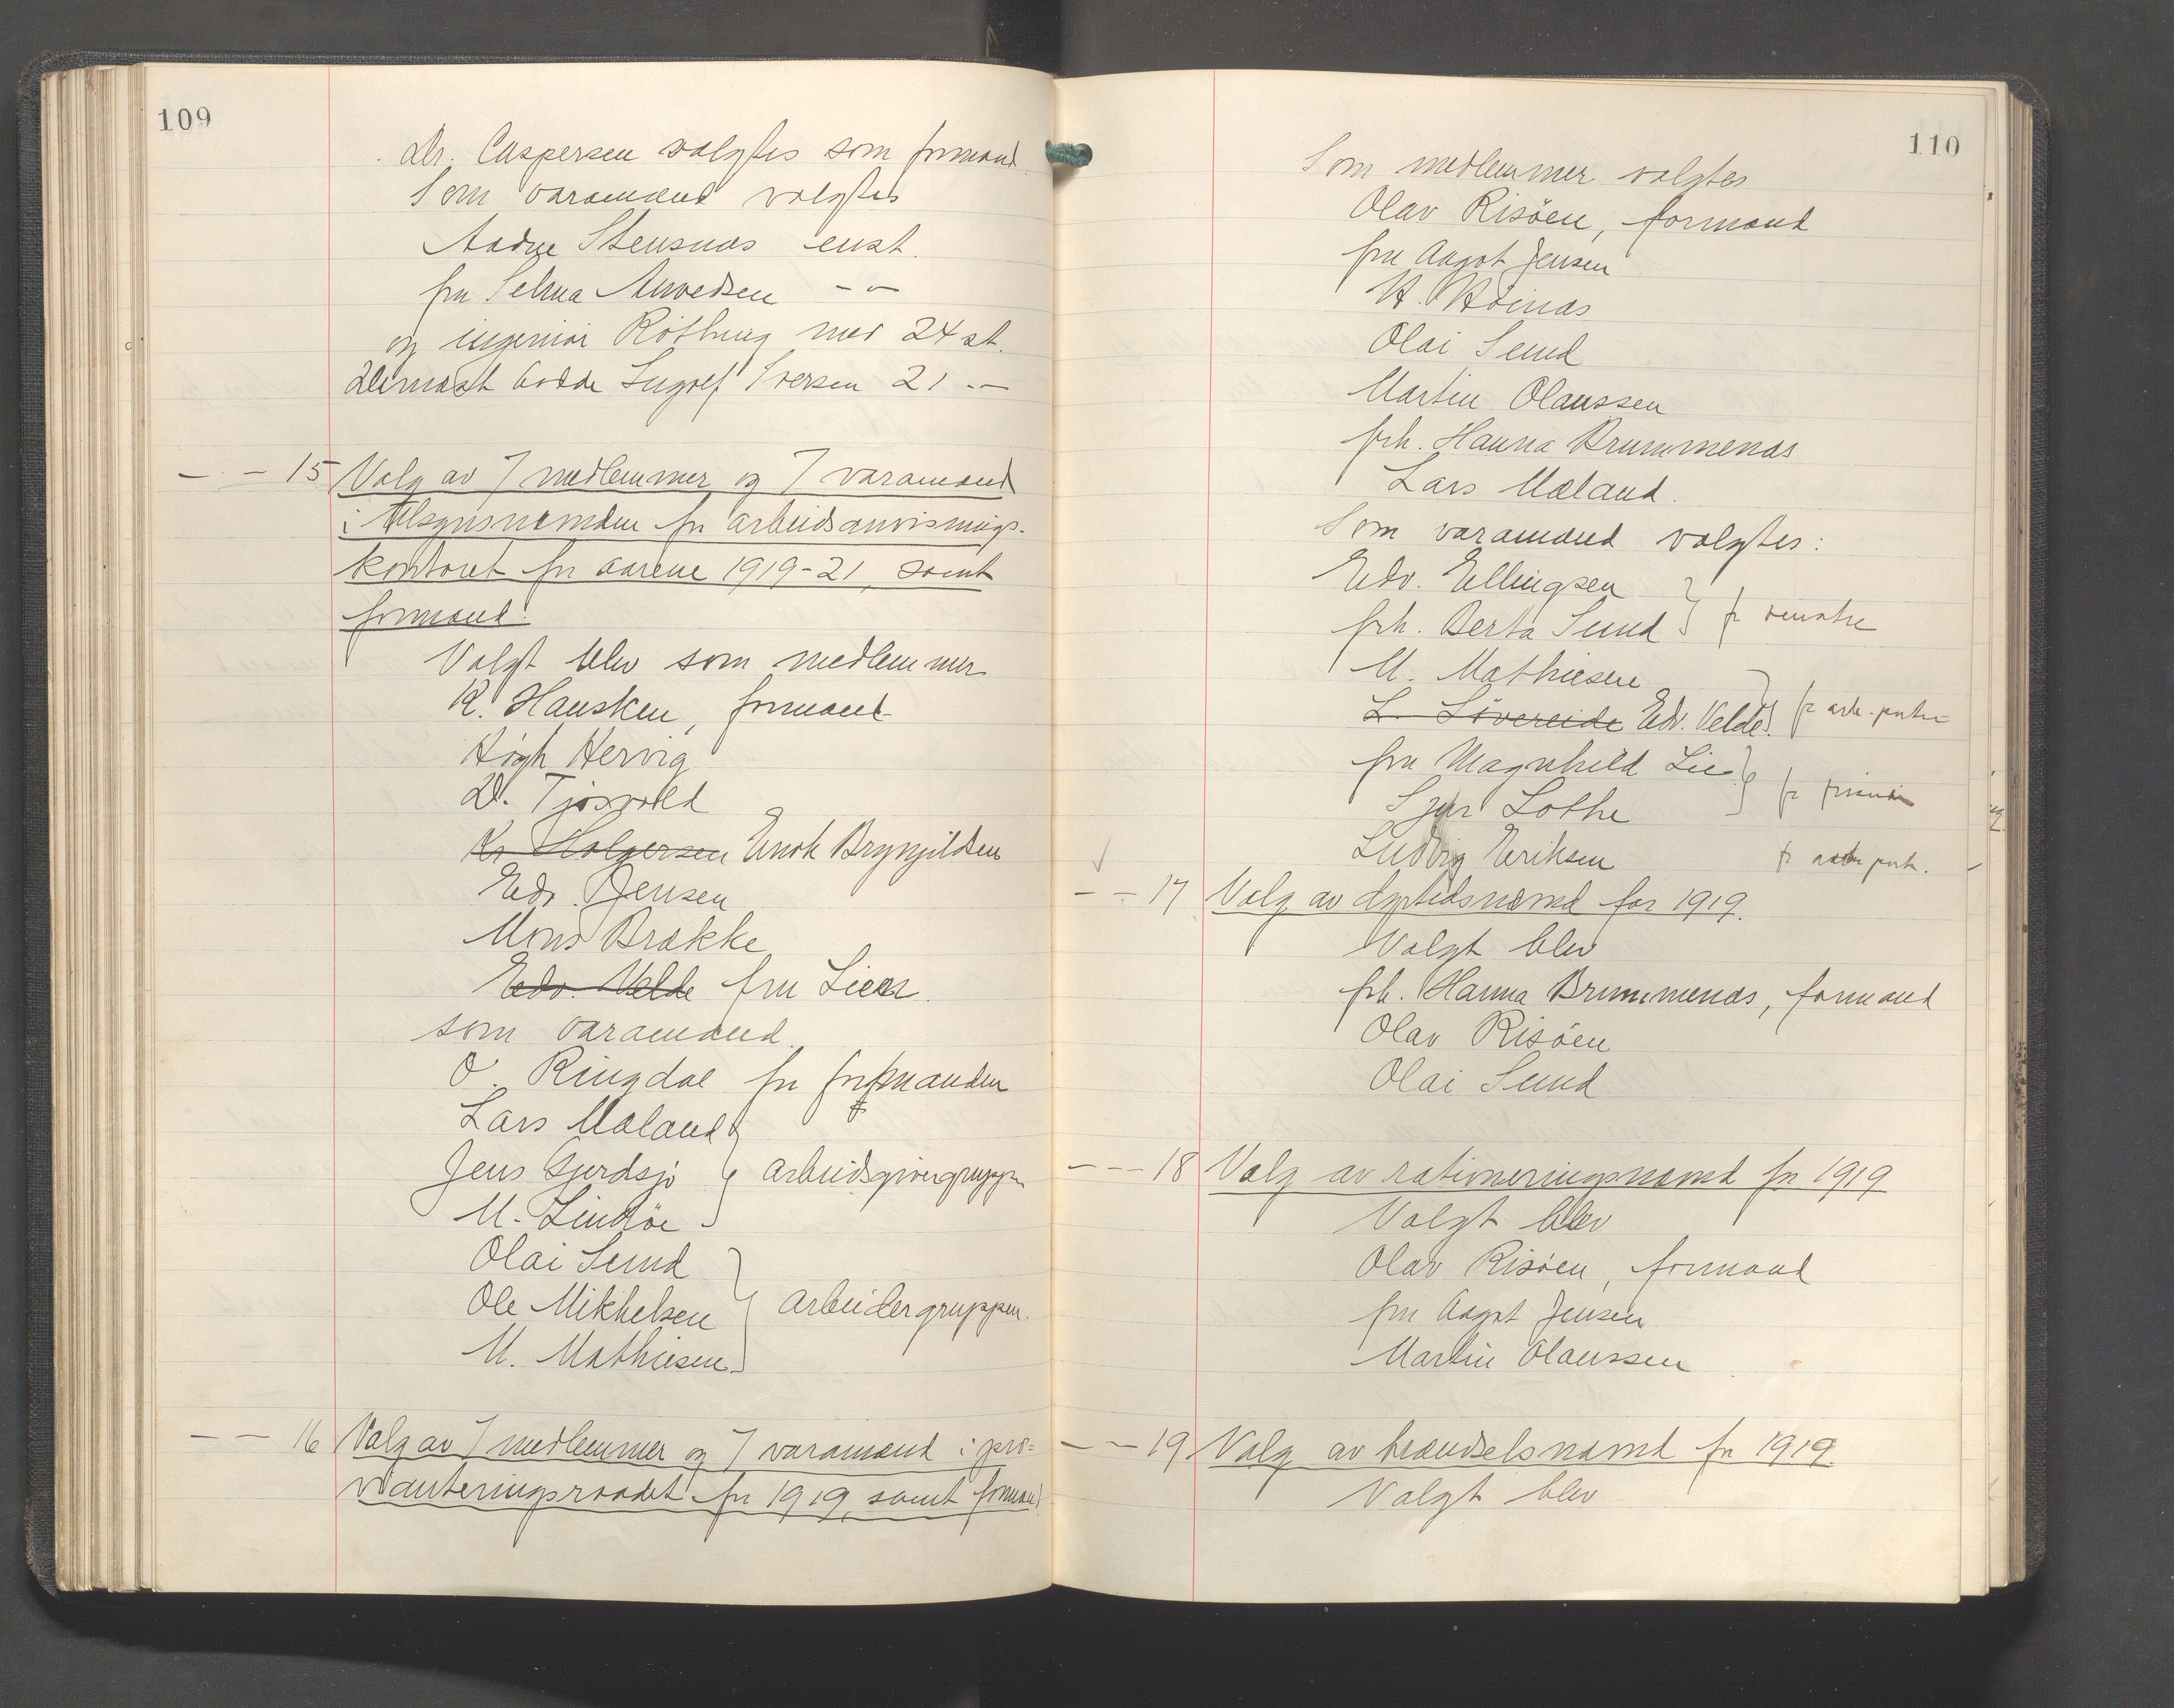 109
Dr. Caspersen valgtes som formand.
Som varamænd valgtes
Aadne Stensnæs enst.
fru Selma Amvedsen - " -
og ingeniør Röthing med 24 st.
Dernæst hadde Ingolf Iversen 21 . —
— " — 15 Valg av 7 medlemmer og 7 varamænd
i tilsynsnemden for arbeidsanvisnings-
kontoret for aarene 1919-21, samt
formand.
Valgt blev som medlemmer
K. Hausken, formand
Högh Hervig
D. Tjösvold
Kr Holgersen Enok Brynjildsen
Edv. Jensen
Mons Brække
Edv. Velde fru Liers.
som varamænd.
O. Ringdal for formanden
Lars Mæland
Jens Gjerdsjö } arbeidsgivergruppen
M. Lindöe
Olai Sund
Ole Mikkelsen } arbeidergruppen.
M. Mathiesen
— — 16 Valg av 7 medlemmer og 7 varamænd i pro=
vianteringsraadet for 1919, samt formand.
110
Som medlemmer valgtes
Olav Risöen, formand
fru Aagot Jensen
H. Höinæs
Olai Sund
Martin Olaussen
frk. Hanna Brummenæs
Lars Mæland.
Som varamænd valgtes:
Edv. Ellingsen
frk. Berta Sund } fr venstre
M. Mathiesen
L. Lövereide Edv. Velde } fr arb. partiet
fru Magnhild Lie
Sjur Lothe
Ludvig Eriksen fr arb. part.
— — 17 Valg av dyrtidsnemd for 1919.
Valgt blev
frk. Hanna Brummenæs, formand
Olav Risöen
Olai Sund
— — — 18 Valg av rationeringsnemd for 1919
Valgt blev
Olav Risöen, formand
fru Aagot Jensen
Martin Olaussen
— — 19 Valg av brændselsnemd for 1919.
Valgt blev